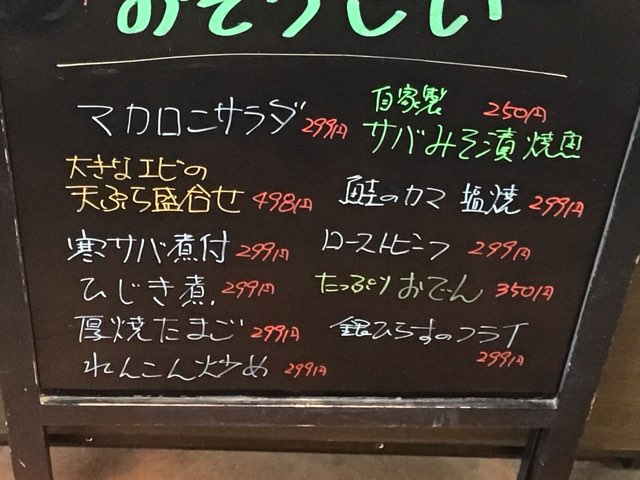 おそうじい
マカロニサラダ 299円
大きなエビの
天ぷら盛合せ 498円
寒サバ煮付 299円
ひじき煮 299円
厚焼たまご 299円
れんこん炒め 299円
自家製 250円
サバみそ漬焼魚
鮭のカマ 塩焼 299円
ローストビーフ 299円
たっぷりおでん 350円
銀ひらすのフライ
299円